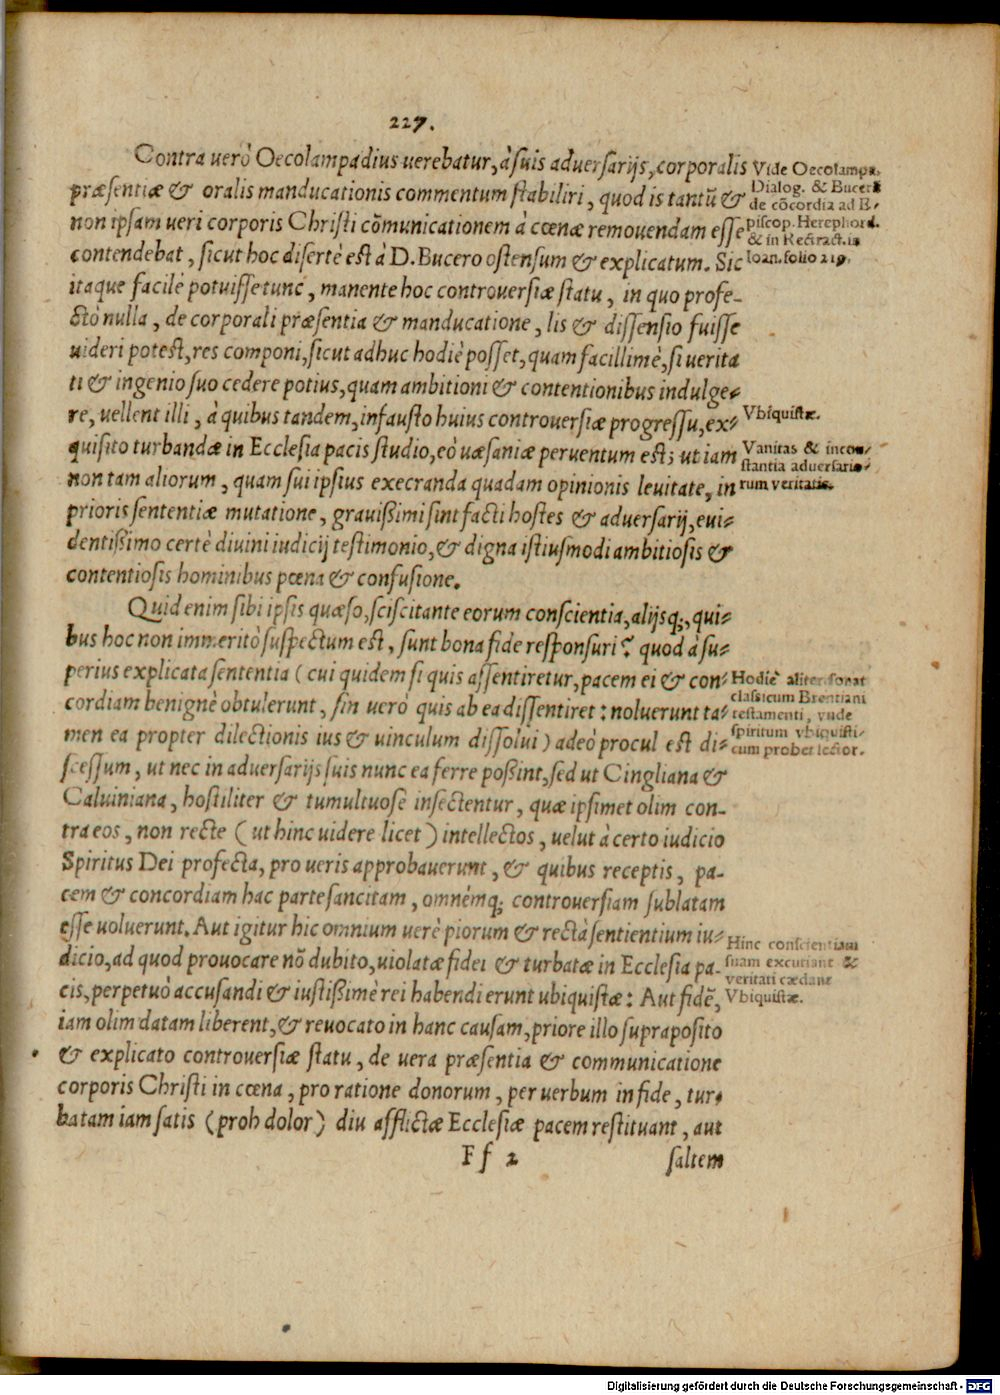 227.
Contra uerò Oecolampadius uerebatur, à suis aduersarijs, corporalis
præsentiæ & oralis manducationis commentum stabiliri, quod is tantũ &
non ipsam ueri corporis Christi cõmunicationem à cœnæ remouendam esse
contendebat, sicut hoc disertè est à D. Bucero ostensum & explicatum. Sic
itaque facilè potuisse tunc, manente hoc controuersiæ statu, in quo profe-
ctò nulla, de corporali præsentia & manducatione, lis & dissensio fuisse
uideri potest, res componi, sicut adhuc hodiè posset, quam facillimè, si uerita
ti & ingenio suo cedere potius, quam ambitioni & contentionibus indulge-
re, uellent illi, à quibus tandem, infausto huius controuersiæ progressu, ex-
quisito turbandæ in Ecclesia pacis studio, eò uæsaniæ peruentum est; ut iam
non tam aliorum, quam sui ipsius execranda quadam opinionis leuitate, in
prioris sententiæ mutatione, grauißimi sint facti hostes & aduersarij, eui-
dentißimo certè diuini iudicij testimonio, & digna istiusmodi ambitiosis &
contentiosis hominibus pœna & confusione.
Quid enim sibi ipsis quæso, sciscitante eorum conscientia, alijsq;, qui-
bus hoc non immeritò suspectum est, sunt bona fide responsuri? quod à su-
perius explicata sententia (cui quidem si quis assentiretur, pacem ei & con-
cordiam benignè obtulerunt, sin uerò quis ab ea dissentiret: noluerunt ta-
men ea propter dilectionis ius & uinculum dissolui) adeò procul est di-
scessum, ut nec in aduersarijs suis nunc ea ferre poßint, sed ut Cingliana &
Caluiniana, hostiliter & tumultuose insectentur, quæ ipsimet olim con-
tra eos, non recte (ut hinc uidere licet) intellectos, uelut à certo iudicio
Spiritus Dei profecta, pro ueris approbauerunt, & quibus receptis, pa-
cem & concordiam hac parte sancitam, omnémq; controuersiam sublatam
esse uoluerunt. Aut igitur hic omnium uerè piorum & rectà sentientium iu-
dicio, ad quod prouocare nõ dubito, uiolatæ fidei & turbatæ in Ecclesia pa-
cis, perpetuò accusandi & iustißimè rei habendi erunt ubiquistæ: Aut fidẽ,
iam olim datam liberent, & reuocato in hanc causam, priore illo supraposito
& explicato controuersiæ statu, de uera præsentia & communicatione
corporis Christi in cœna, pro ratione donorum, per uerbum in fide, tur-
batam iam satis (proh dolor) diu afflictæ Ecclesiæ pacem restituant, aut
Ff 2 saltem
Vide Oecolampa.
Dialog. & Buceri
de cõcordia ad E-
piscop. Herephord.
& in Retract. in
Ioan. folio 219.
Vbiquistæ.
Vanitas & incon-
stantia aduersario-
rum veritatis.
Hodiè aliter sonat
classicum Brentiani
testamenti, vnde
spiritum vbiquisti-
cum probet lector.
Hinc conscientiam
suam excutiant &
veritati cædant
Vbiquistæ.
Digitalisierung gefördert durch die Deutsche Forschungsgemeinschaft - DFG